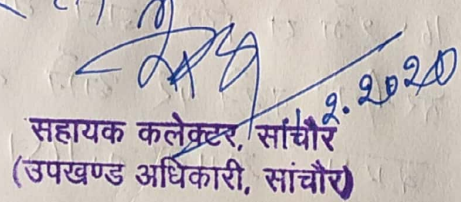 2.2020
सहायक कलेक्टर, सांचौर
(उपखण्ड अधिकारी, सांचौर)